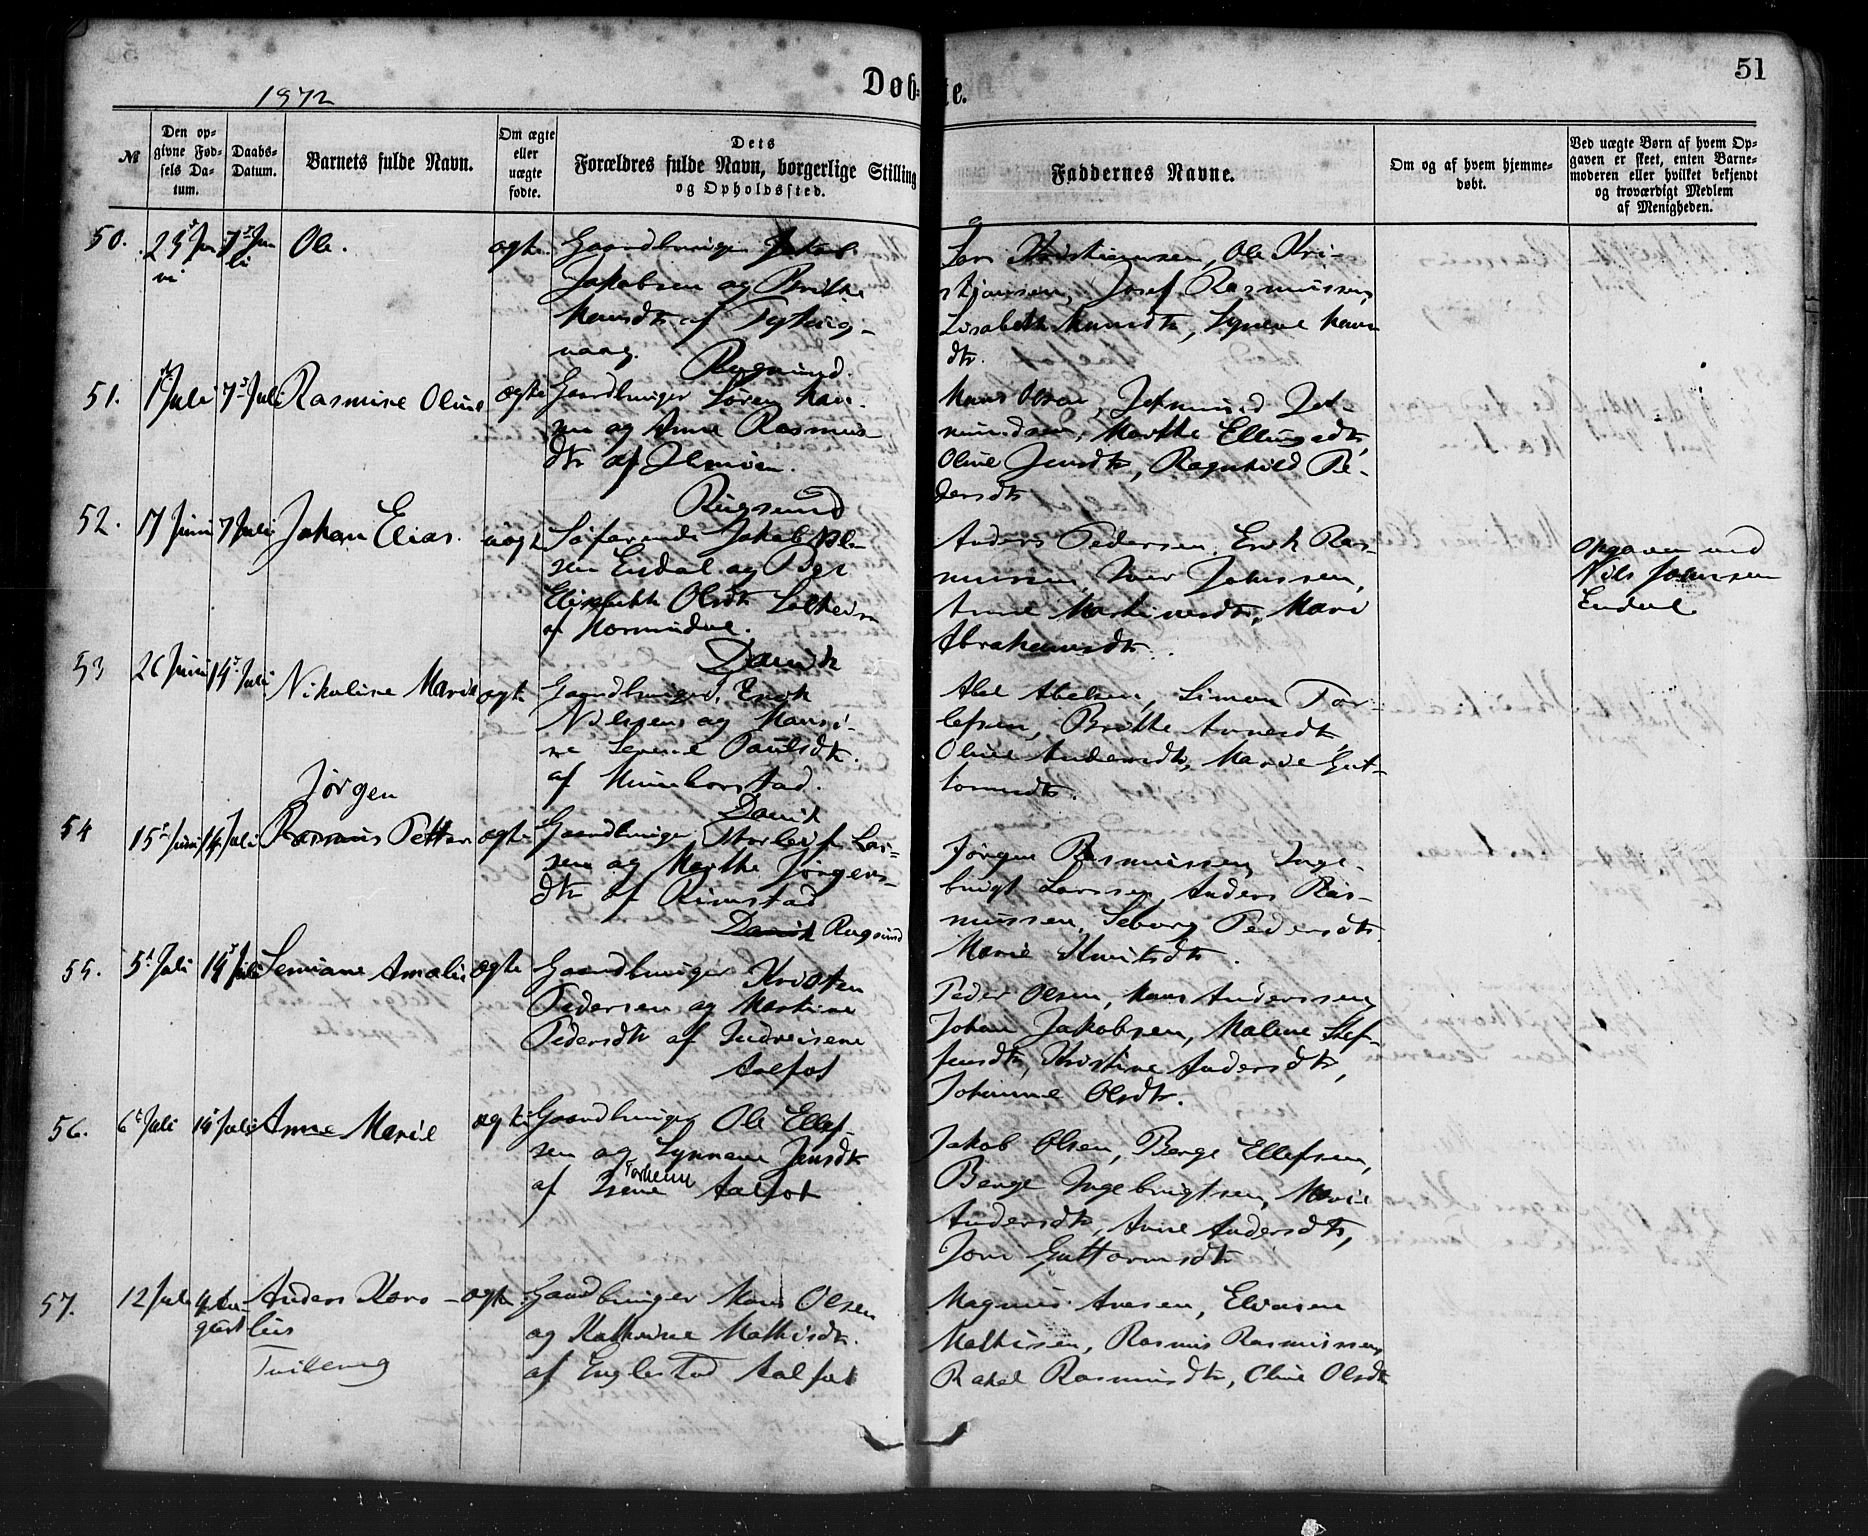 51
1872
Døb-
te.
№
Den op-
givne Fød-
sels Da-
tum.
Daabs-
Datum.
Barnets fulde Navn.
Om ægte
eller
uægte
fødte.
Dets
Forældres fulde Navn, borgerlige Stilling
og Opholdssted.
Faddernes Navne.
Om og af hvem hjemme-
døbt.
Ved uægte Børn af hvem Op-
gaven er skeet, enten Barne-
moderen eller hvilket bekjendt
og troværdigt Medlem
af Menigheden.
50.
Ole.
ægte
Gaardbruger Jakob
Jakobsen og Brithe
Hansdtr af
Rugsund
Lars Kristiansen, Ole Kri-
stjansen, Josef Rasmussen,
Lisabeth Hansdtr, Synneve Han-
dtr.
51.
1 Juli
7 Juli
Rasmine Oline
ægte
Gaardbruger Søren Han-
sen og Anne Rasmus-
dtr af
Rugsund
Hans Olsen, Jetmund Jet-
mundsen, Marthe Ellingsdtr,
Oline Jensdtr, Ragnhild Pe-
dersdtr
52.
17 Juni
7 Juli
Johan Elias.
uægte
Søfarende Jakob Niel-
sen Endal og
Elisabeth Olsdtr
af Hornindal.
Davik
Anders Pedersen, Enok Ras-
mussen, Iver Johnsen,
Anne Martinusdtr, Mari
Abrahamsdtr.
Opgaven ved
Nils Johnsen
Endal
53
26 Juni
14 Juli
Nikoline Marie
ægte
Gaardbruger Enok
Nilssen og Hansi-
ne Severine Paulsdtr.
af
Davik
Abel Abelsen, Simon Tor-
lefsen, Brithe Arnesdtr,
Oline Andersdtr, Marie Gut-
tormsdtr.
54
15 Juni
14 Juli
Jørgen
Rasmus Petter
ægte
Gaardbruger Thorleif Lar-
sen og Marthe Jørgens-
dtr af Rimstad
Davik Rugsund
Jørgen Rasmussen, Inge-
brigt Larssen, Anders Ras-
mussen, Seborg Pedersdtr
Marie Knutsdtr.
55.
5 Juli
14 Juli
Amalie
ægte
Gaardbruger Kristen
Pedersen og Martine
Pedersdtr af
Aalfot
Peder Olsen, Hans Anderssen,
Johan Jakobsen, Maline Stef-
fensdtr, Kristine Andersdtr,
Johanne Olsdtr.
56.
6 Juli
14 Juli
Anne Marie
ægte
Gaardbruger Ole Ellef-
sen og Synneve Jensdtr
af Aalfot
Jakob Olsen, Berge Ellefsen,
Berge Ingebrigtsen, Marie
Andersdtr, Anne Andersdtr,
Guttormsdtr
57.
12 Juli
4 Au-
gust
Anders Kor-
lius
Tvilling
ægte
Gaardbruger Mons Olsen
og Kathrine Mathisdtr.
af Englestad Aalfot
Magnus Arnesen,
Mathisen, Rasmus Rasmussen,
Rakel Rasmusdtr, Oline Olsdtr